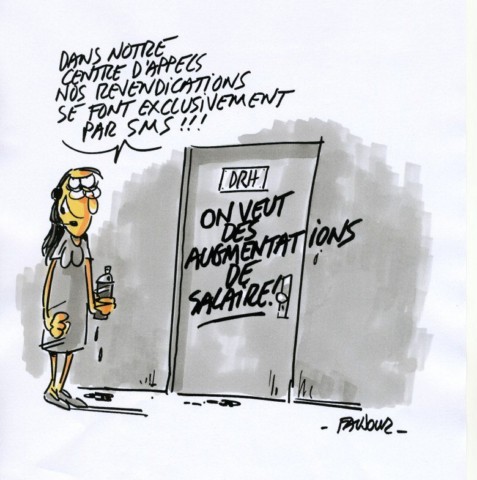 DANS NOTRE
CENTRE D'APPELS
NOS REVENDICATIONS
SE FONT EXCLUSIVEMENT
PAR SMS !!!
DRH
ON VEUT
DES
AUGMENTATIONS
DE
SALAIRE!
- FAUJOUR -